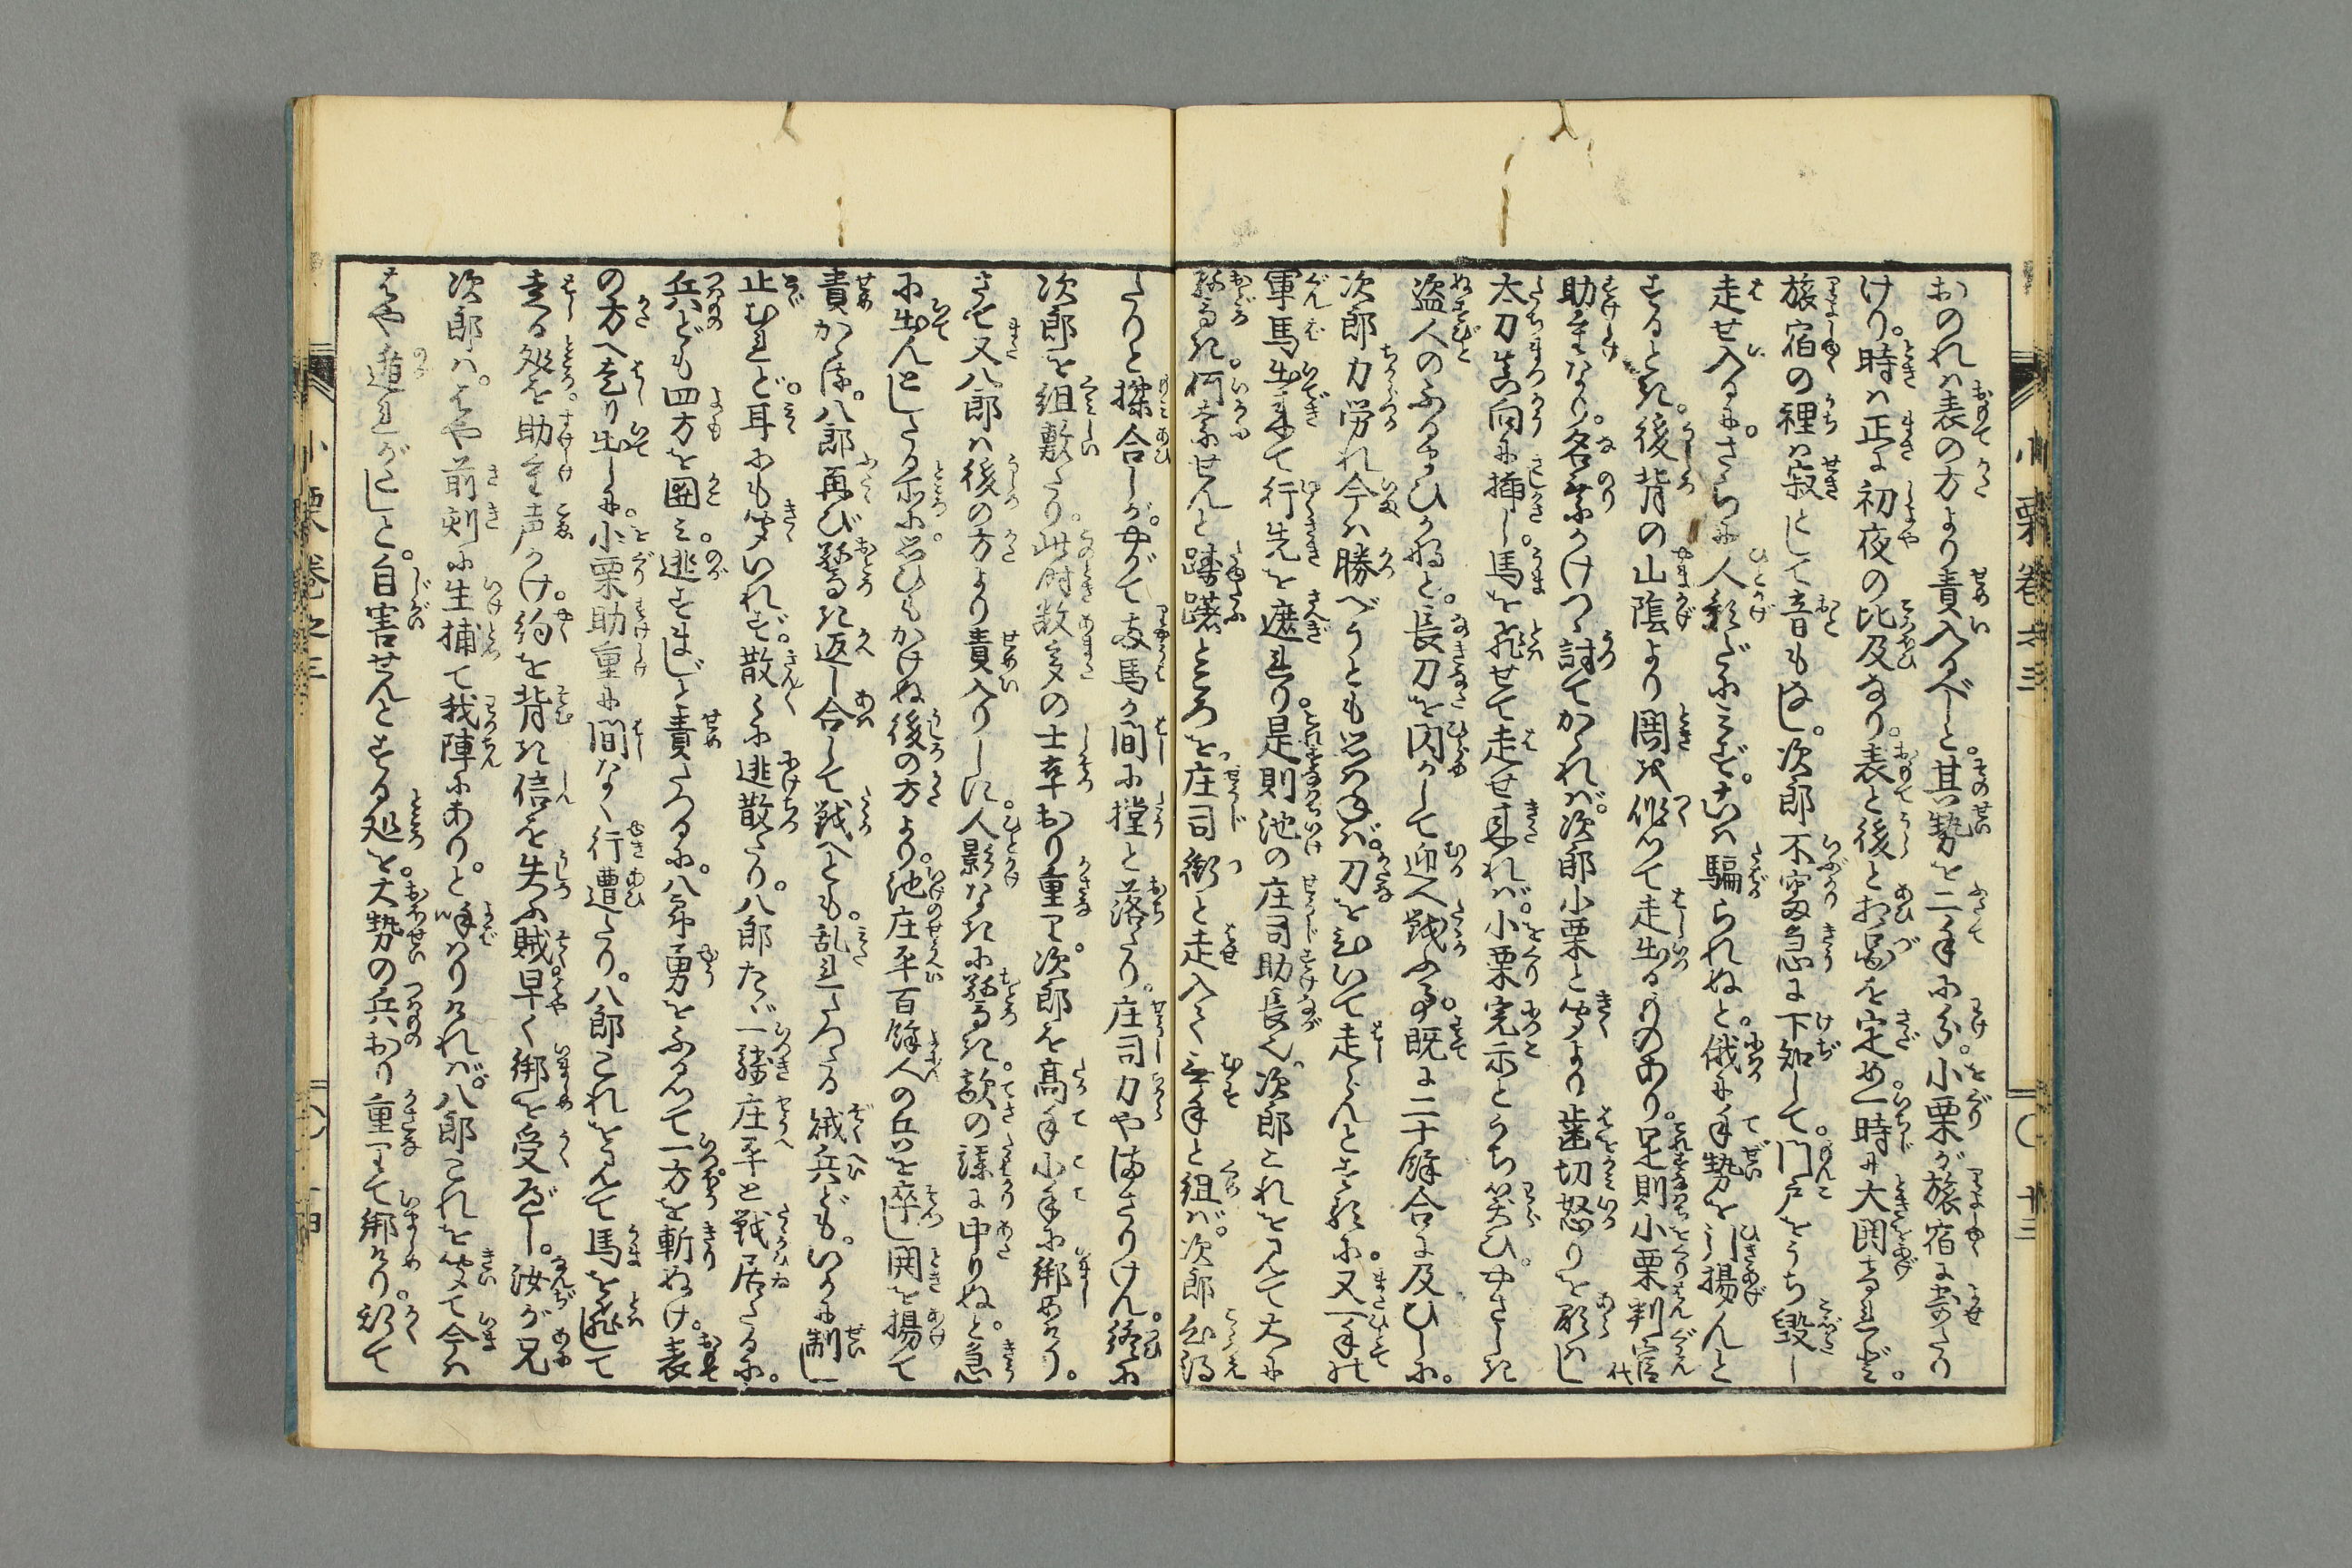 おのれハ表の方より責入るべしと。其勢を二手に分。小栗が旅宿に寄たり
けり。時ハ正に初夜の比及なり。表と後と相図を定め一時に大閧あぐれど。
旅宿の裡ハ寂として音もなし。次郎不審急に下知して。門戸をうち毀し
走せ入るに。さらに人影だにみえず。こハ騙られぬと。俄に手勢を引揚んと
するとき。後背の山陰より閧を作つて走出るものあり。是則小栗判官代
助重なり。名のりかけつゝ討てかゝれバ。次郎小栗と聞より歯切怒りを顕ハし
太刀真向に挿し。馬を飛せて走せ来れバ。小栗完尓とうち笑ひ。やさしき
盗人のふるまひかなと。長刀を閃かして迎へ戦ふ事。既に二十餘合に及びしに。
次郎力労れ今ハ勝べうとも思ハねバ。刀を引いて走らんとする所に。又一手の
軍馬出来て行先を遮れり。是則池の庄司助長也。次郎これを見て大に
驚き。何奈せんと躊躇ところを。庄司衝と走入て無手と組バ。次郎も心得
たりと揉合しが。やがて両馬が間に撞と落たり。庄司力やまさりけん。終に
次郎を組敷たり。此時数多の士卒おり重り。次郎を高手小手に綁めけり。
さて又八郎ハ後の方より責入りしに。人影なきに驚き。敵の謀に中りぬと。急
に出んとしたる所に。思ひもかけぬ後の方より。池庄平百餘人の兵を卒し閧を揚て
責かゝる。八郎再び驚き返し合して戦へども。乱れたつる 賊兵ども。いかに制し
止むれど。耳にも聞いれず。散々に逃散たり。八郎たゞ一騎庄平と戦居たるに。
兵ども四方を囲ミ。逃すまじと責たつるに。八郎勇をふるつて一方を斬ぬけ。表
の方へ走り出しに。小栗助重に間なく行遭たり。八郎これを見て馬を飛して
走る処を助重声かけ。約を背き信を失ふ賊早く綁を受ずや。汝が兄
次郎ハ。はや前刻に生捕て我陣にあり。と呼ハりけれバ。八郎これを聞て今ハ
はや遁れがたしと。自害せんとする処を。大勢の兵おり重りて綁けり。かくて
小栗巻之三
〇十三
小栗巻之三